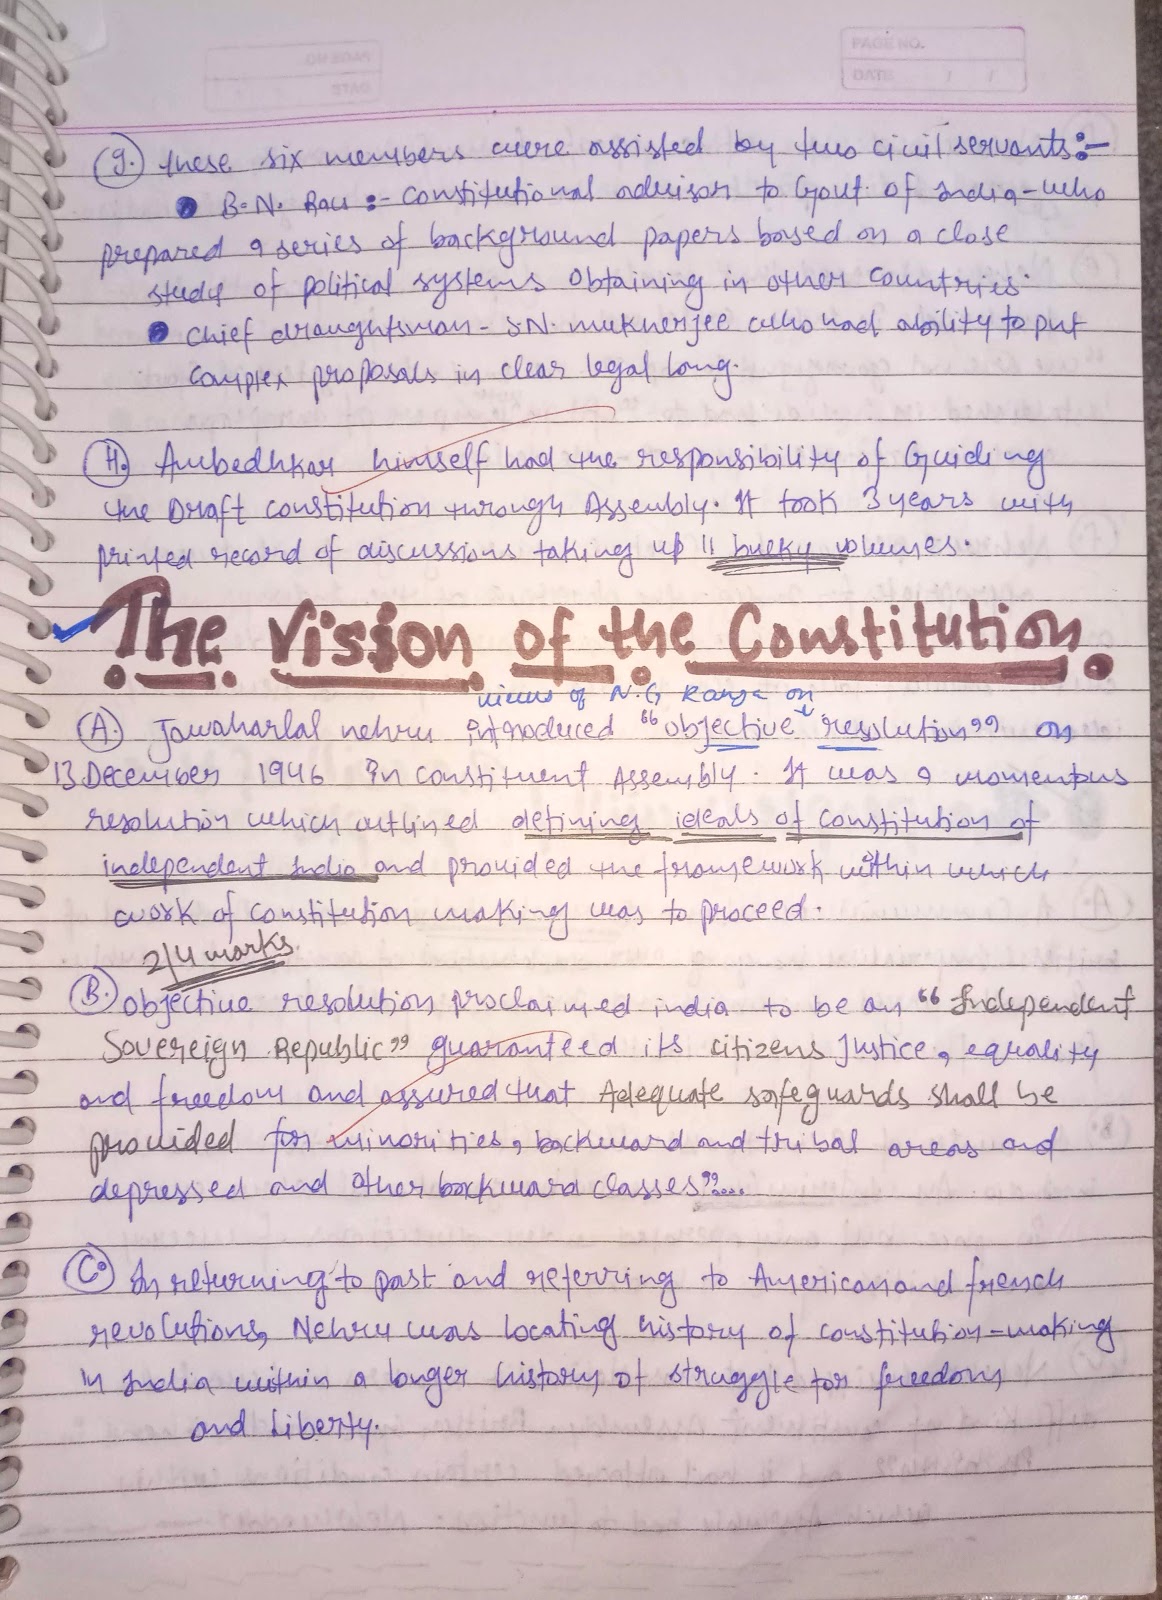 PAGE NO.
DATE / /
g. these six members were assisted by two civil servants:-
• B.N. Rau :- Constitutional advisor to Govt. of India - who
prepared a series of background papers based on a close
study of political systems obtaining in other countries.
• Chief draughtsman - S.N. mukherjee who had ability to put
Complex proposals in clear legal lang.
H. Ambedhkar himself had the responsibility of Guiding
the Draft constitution through Assembly. It took 3 years with
printed record of discussions taking up 11 bulky volumes.
The Vission of the Constitution.
views of N.G Ranga on
A. Jawaharlal nehru introduced "objective resolution" on
13 December 1946 in constituent Assembly. It was a momentous
resolution which outlined defining ideals of constitution of
independent India and provided the framework within which
work of constitution making was to proceed.
2/4 marks
B. objective resolution proclaimed india to be an "Independent
Sovereign Republic" guaranteed its citizens Justice, equality
and freedom and assured that Adequate safeguards shall be
provided for minorities, backward and tribal areas and
depressed and other backward classes"....
C. In returning to past and referring to American and french
revolutions, Nehru was locating history of constitution-making
in India within a longer history of struggle for freedom
and Liberty.